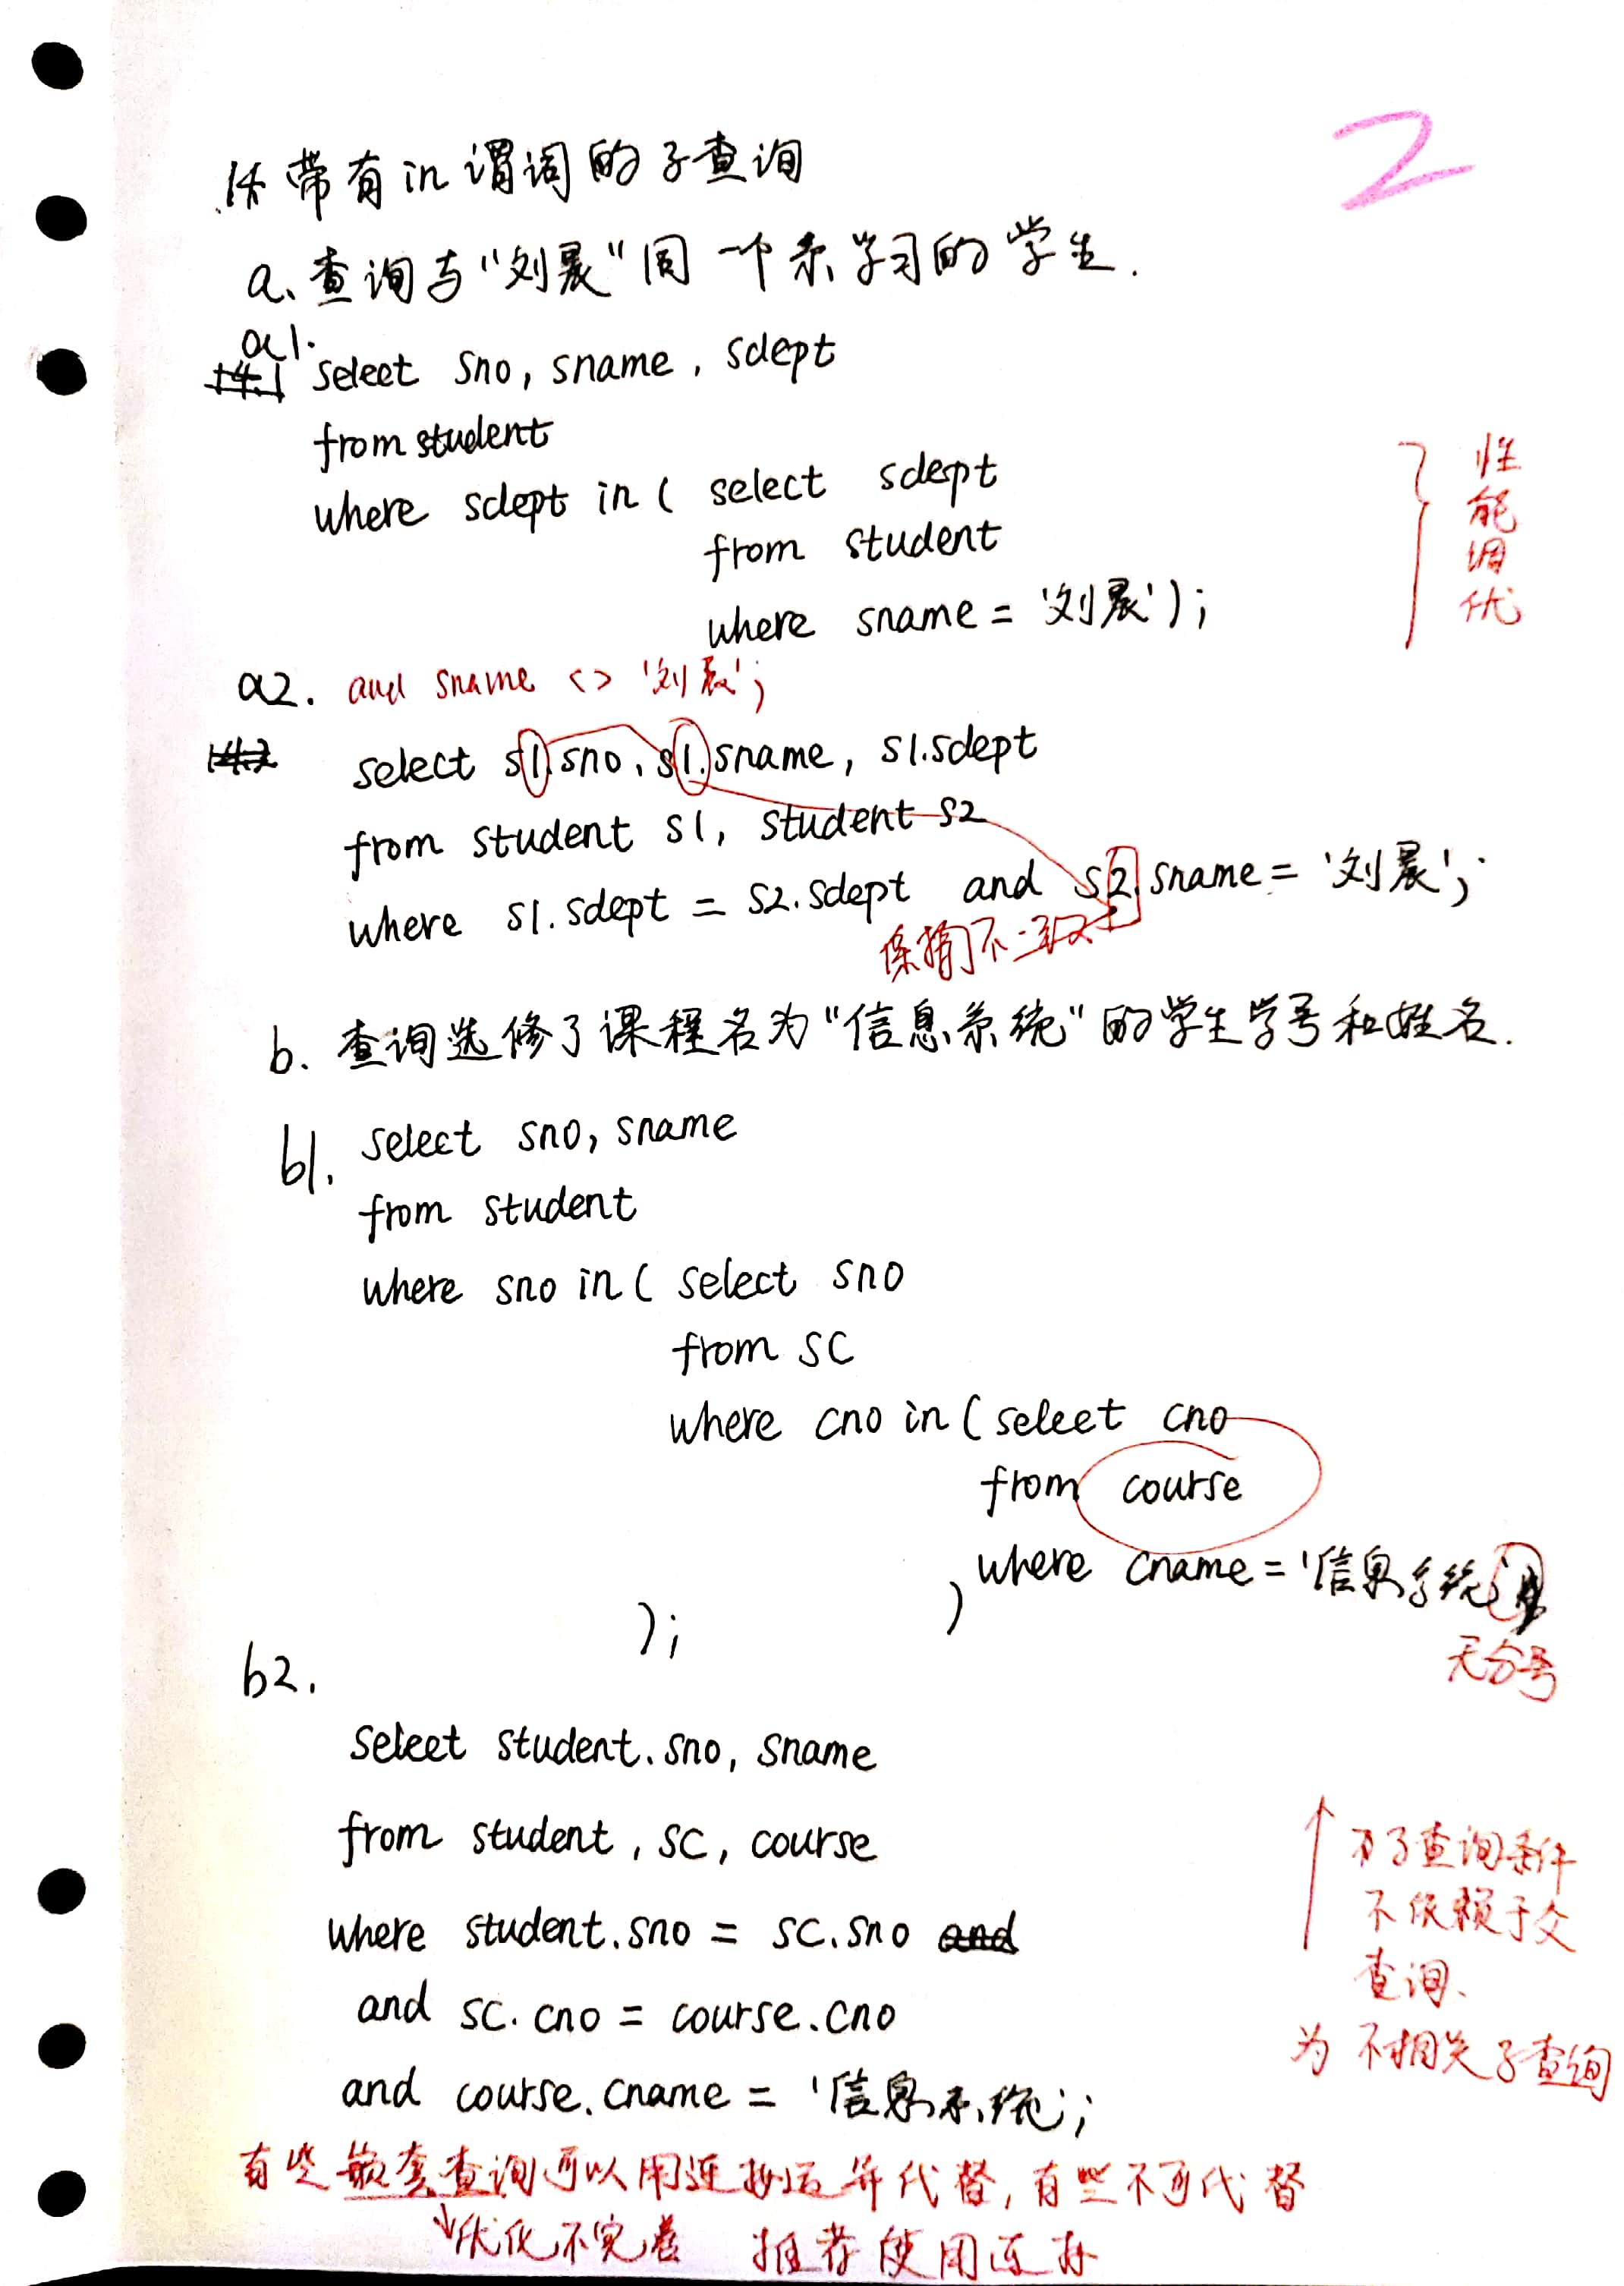 2
14 带有in谓词的子查询
a、查询与"刘晨"同一个系学习的学生.
a1.
14.1 select sno, sname, sdept
from student
where sdept in ( select sdept
from student
where sname = '刘晨');
性能调优
a2. and sname <> '刘晨';
14.2 select s1.sno, s1.sname, s1.sdept
from student s1, student s2
where s1.sdept = s2.sdept and s2.sname = '刘晨';
b. 查询选修了课程名为"信息系统"的学生学号和姓名.
b1. select sno, sname
from student
where sno in ( select sno
from SC
where cno in (select cno
from course
where cname = '信息系统'
)
);
无分号
b2.
select student.sno, sname
from student, SC, course
where student.sno = SC.sno and
and SC.cno = course.cno
and course.cname = '信息系统';
子查询条件
不依赖于父
查询、
为不相关子查询
有些嵌套查询可以用连接运算代替, 有些不可代替
↓优化不完善 推荐使用连接